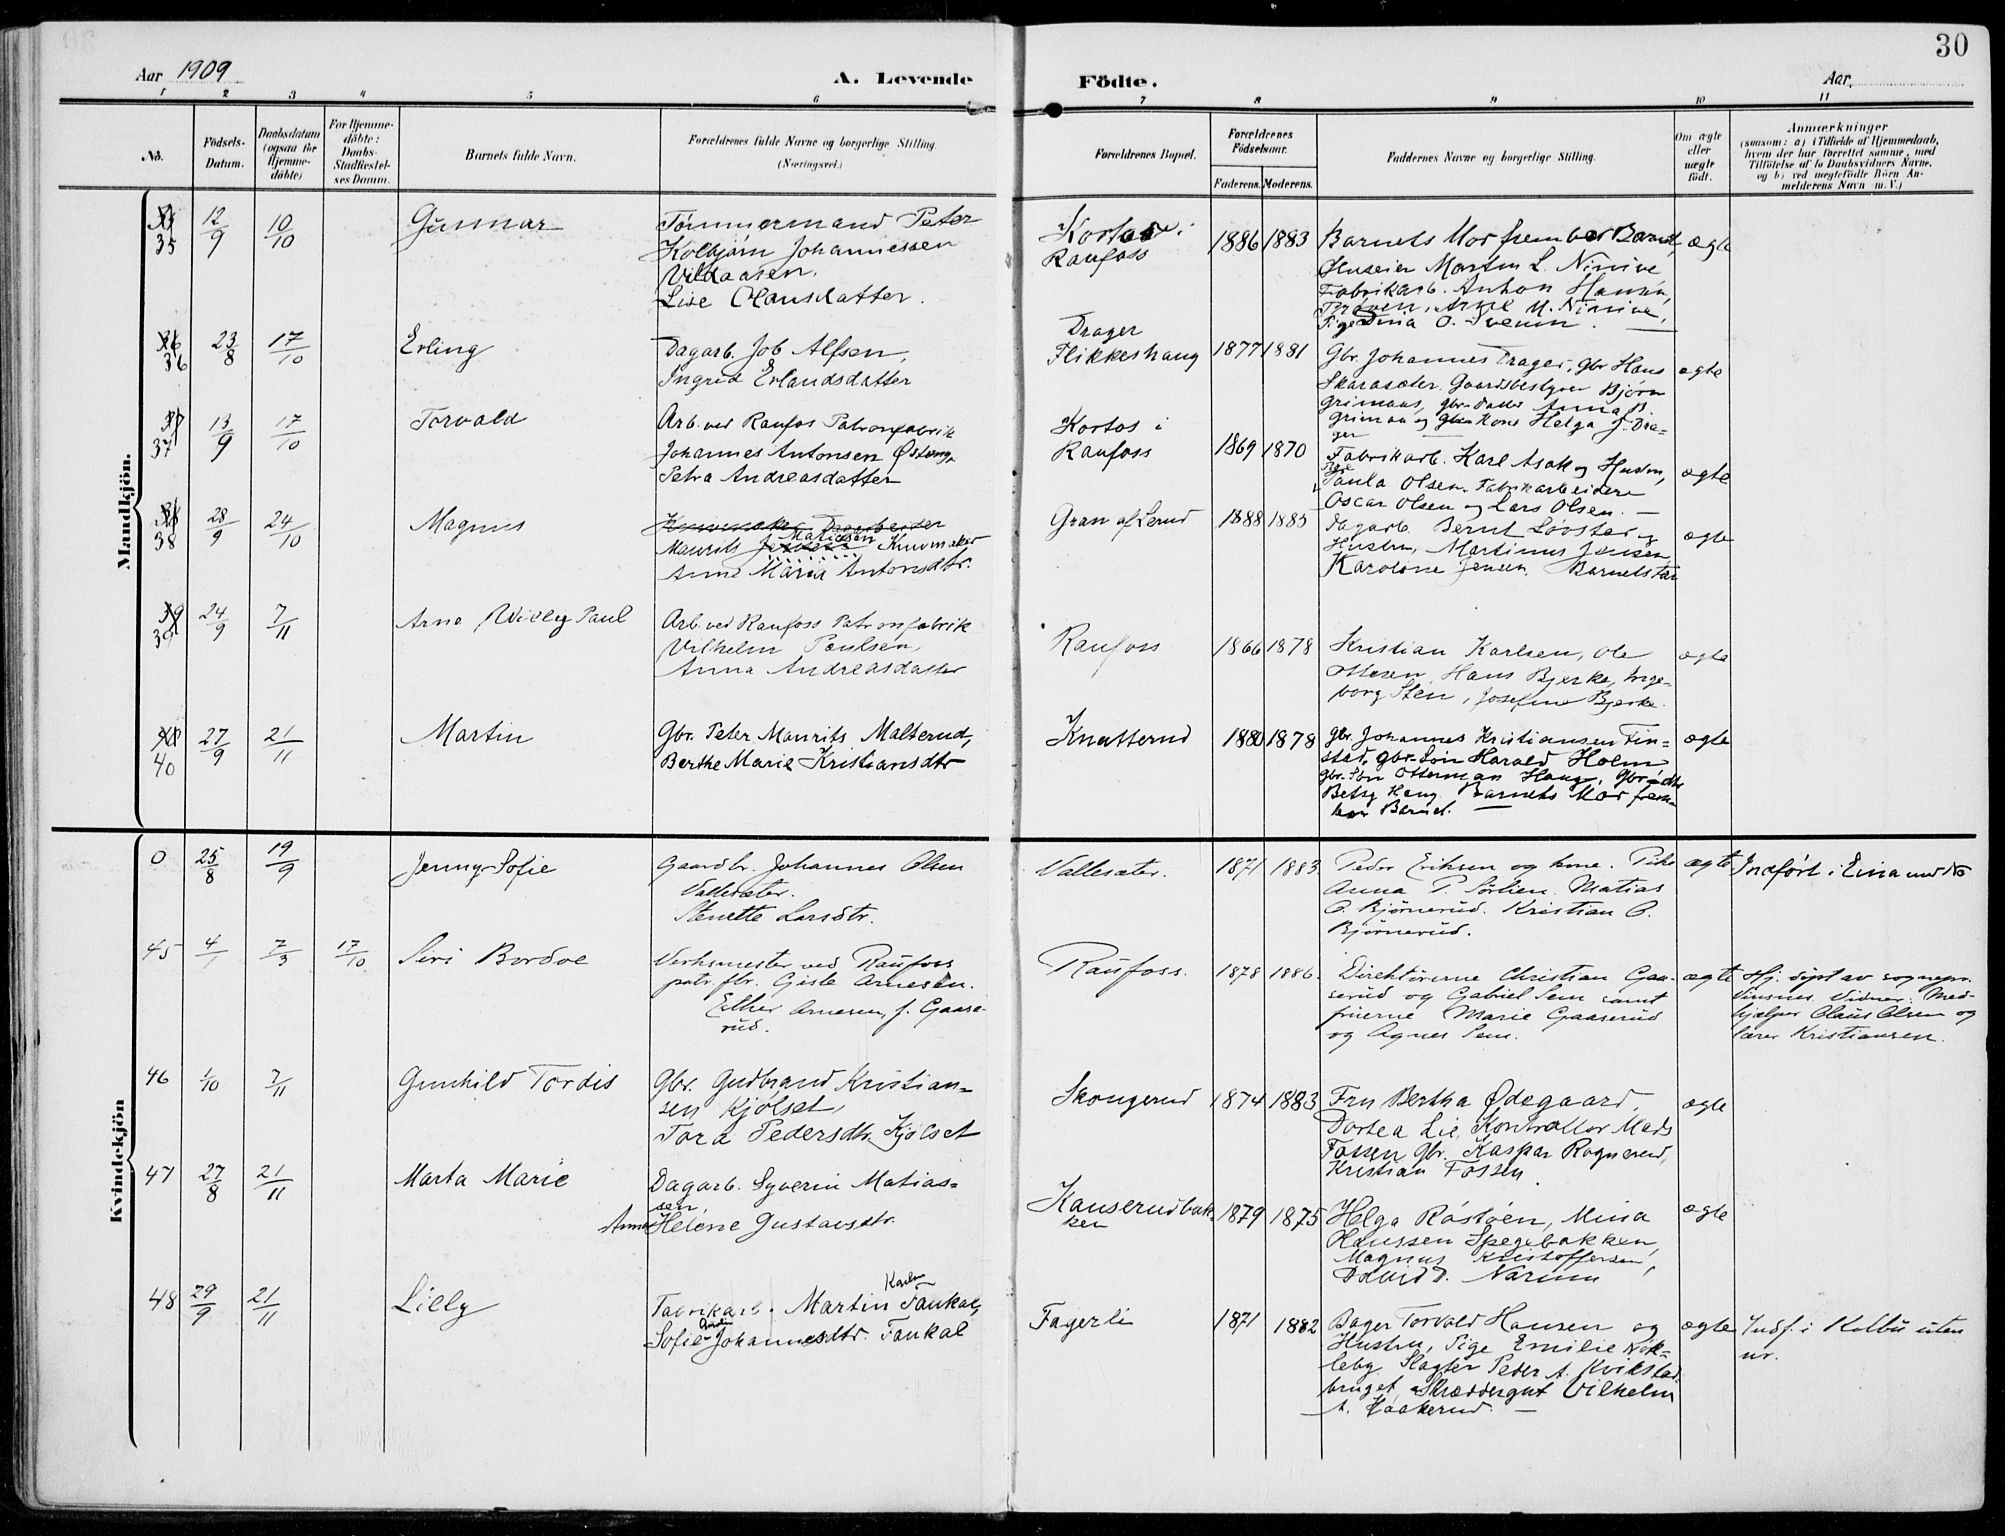 30
Aar 1909
A. Levende
Födte.
Aar
1 2 3 4 5 6 7 8 9 10 11
No.
Födsels-
Datum.
Daabsdatum
(ogsaa for
Hjemme-
döbte)
For Hjemme-
döbte:
Daabs-
Stadfæstel-
ses Datum.
Barnets fulde Navn.
Forældrenes fulde Navne og borgerlige Stilling
(Næringsvei.)
Forældrenes Bopæl.
Forældrenes
Födselsaar.
Faderens. Moderens.
Faddernes Navne og borgerlige Stilling.
Om ægte
eller
uægte
födt.
Anmærkninger
(saasom: a) i Tilfælde af Hjemmedaab,
hvem der har forrettet samme, med
Tilföielse af to Daabsvidners Navne.
og b) ved uægtefödte Börn An-
melderens Navn m. V.)
Mandkjön.
35 12/9 10/10 Gunnar
Tømmermand Peter
Kolbjørn Johannessen
Vildaasen.
Lise Olausdatter.
Kortos i
Raufoss
1886 1883
Barnets Mor frembar Barnet,
Huseier Martin L. Ninive
Fabrikarb. Anton Hansen,
Prøven, Arne M. Ninive,
Pige Dina O. Sveum.
ægte
36 23/8 17/10 Erling
Dagarb. Job Alfsen,
Ingrid Erlandsdatter
Drager
Flikkeshaug
1877 1881
Gbr. Johannes Drager, gbr Hans
Skarasæter. Gaardsbestyrer Bjørn
Grimaas, gbr. datter Anna B.
Grimaa og Gbr Kone Helga J. Dra-
ger
ægte
37 13/9 17/10 Torvald
Arb. ved Raufos Patronfabrik
Johannes Antonsen Østeng,
Petra Andreasdatter
Kortos i
Raufoss
1869 1870
Fabrikarb. Karl Asak og Hustru,
Pige
Paula Olsen. Fabrikarbeidere
Oscar Olsen og Lars Olsen.
ægte
38 28/9 24/10 Magnus
Dagarbeider
Matissen
Maurits Jensen Knivmaker
Anne Maria Antonsdtr.
Gran af Lerud
1888 1885
Dagarb. Bernt Løvstad og
Hustru, Martinus Jensen
Karoline Jensen. Barnets Far
ægte
39 24/9 7/11 Arne Willy Paul
Arb. ved Raufoss Patronfabrik
Vilhelm Paulsen,
Anna Andreasdatter
Raufoss
1866 1878
Kristian Karlsen, Ole
Ottesen, Hans Bjerke, Inge-
borg Sten, Josefine Bjerke.
ægte
40 27/9 21/11 Martin
Gbr. Peter Maurits Malterud,
Berthe Marie Kristiansdtr
Knatterud
1880 1878
Gbr. Johannes Kristiansen Fin-
stad, Gbr. Søn Harald Holm
Gbr. Søn Otterman Haug, Gbr. dtr
Betsy Haug. Barnets Mor frem-
bar Barnet.
ægte
Kvindekjön
0 25/8 19/9 Jenny Sofie
Gaardbr. Johannes Olsen
Vallesæter.
Stenette Larsdtr.
Vallesæter.
1871 1883
Peder Eriksen og kone. Pike
Anna P. Sørlien. Matias
O. Bjørnerud. Kristian O.
Bjørnerud.
ægte
Indført i Eina und. No
45 4/1 7/3 17/10 Siri Bordoe
Verksmester ved Raufoss
patr. fbr. Gisle Arnesen.
Esther Arnesen, f. Gaase-
rud.
Raufoss.
1878 1886.
Direktørerne Christian Gaa-
serud og Gabriel Sem samt
fruerne Marie Gaaserud
og Agnes Sem.
ægte
Hj. døpt av sognepr.
Vinsnes. Vidner: Med-
hjælper Claus Olsen og
lærer Kristiansen.
46 1/10 7/11 Gunhild Tordis
Gbr. Gudbrand Kristian-
sen Kjølset,
Tora Pedersdtr. Kjølset
Skongerud
1874 1883
Fru Bertha Ødegaard,
Dortea Lie, Kontrollør Mads
Fossen Gbr. Kaspar Rognerud,
Kristian Fossen.
ægte
47 27/8 21/11 Marta Marie
Dagarb. Syverin Matias-
sen,
Anne Helene Gustavsdtr.
Kanserudbak-
ken
1879 1875
Helga Røstøen, Mina
Hanssen Spegebakken,
Magnus Kristoffersen,
David D. Narum
ægte
48 29/9 21/11 Lilly
Karlsen
Fabrikarb. Martin Faukal,
Sofie Johannesdtr. Faukal
Fagerli
1871 1882
Bager Torvald Hansen og
Hustru, Pige Emilie Nøk-
leby. Slagter Peder A. Kvikstad-
bruget, Skræddergut Vilhelm
A. Haakerud.
ægte
Indf. i Kolbu uten
nr.